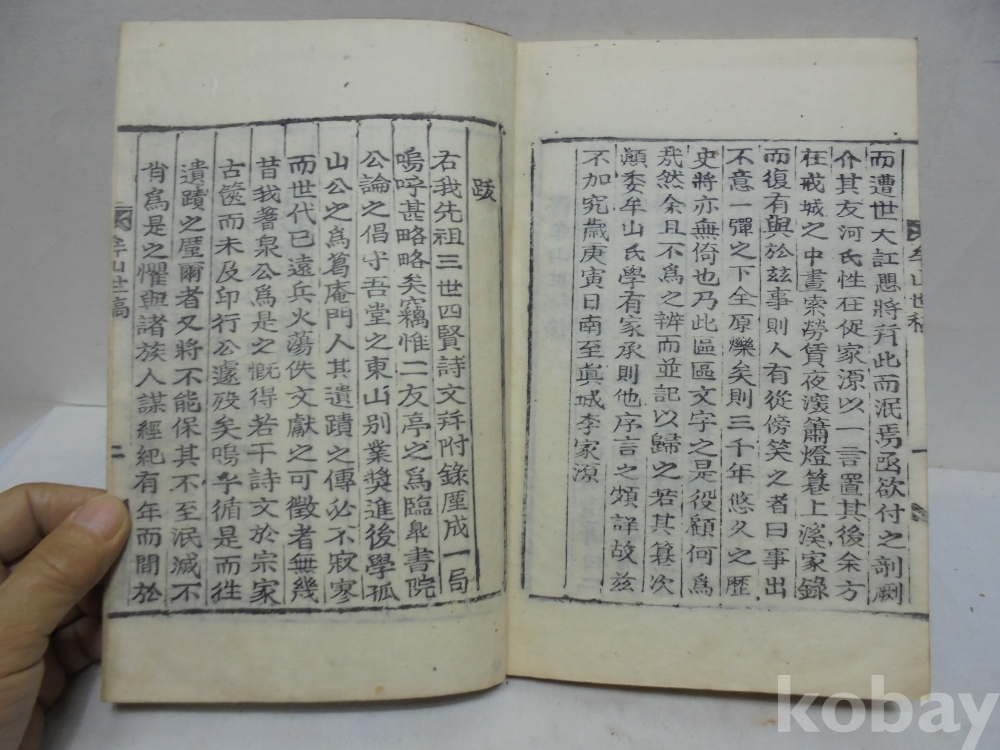 而遭世大訌思將幷此而泯焉亟欲付之剞劂
介其友河氏性在促家源以一言置其後余方
在戒城之中晝索勞賃夜深籌燈簒上溪家錄
而復有與於玆事則人有從傍笑之者曰事出
不意一彈之下全原爍矣則三千年悠久之歷
史將亦無倚也乃此區區文字之是役顧何爲
哉然余且不爲之辨而並記以歸之若其簒次
顚委牟山氏學有家承則他序言之頗詳故玆
不加究歲庚寅日南至眞城李家源
牟山世稿
一
跋
右我先祖三世四賢詩文幷附錄厪成一局
嗚呼甚略略矣竊惟二友亭之爲臨皐書院
公論之倡守吾堂之東山別業奬進後學孤
山公之爲葛庵門人其遺蹟之傳必不寂寥
而世代已遠兵火蕩佚文獻之可徵者無幾
昔我著泉公爲是之慨得若干詩文於宗家
古篋而未及印行公遽歿矣嗚乎循是而往
遺蹟之厪爾者又將不能保其不至泯滅不
肖爲是之懼與諸族人謀經紀有年而間於
牟山世稿
二
kobay